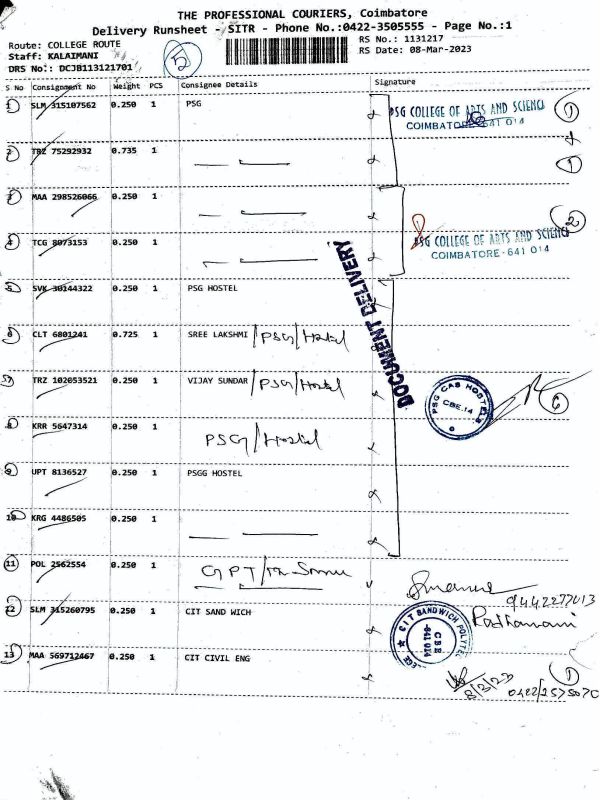 THE PROFESSIONAL COURIERS, Coimbatore
Delivery Runsheet - SITR - Phone No.:0422-3505555 - Page No.:1
Route: COLLEGE ROUTE
RS No.: 1131217
Staff: KALAIMANI
RS Date: 08-Mar-2023
DRS No: DCJB113121701
5
S No Consignment No Weight PCS Consignee Details Signature
1 SLM 315107562 0.250 1 PSG
PSG COLLEGE OF ARTS AND SCIENCE
COIMBATORE-641 014
1
2 TRZ 75292932 0.735 1
1
3 MAA 298526066 0.250 1
2
4 TCG 8073153 0.250 1
PSG COLLEGE OF ARTS AND SCIENCE
COIMBATORE-641 014
DOCUMENT DELIVERY
5 SVK 30144322 0.250 1 PSG HOSTEL
6 CLT 6801241 0.725 1 SREE LAKSHMI /PSG/Hostel
7 TRZ 102053521 0.250 1 VIJAY SUNDAR /PSG/Hostel
PSG CAS HOSTELS
CBE.14
6
8 KRR 5647314 0.250 1 PSG/Hostel
9 UPT 8136527 0.250 1 PSGG HOSTEL
10 KRG 4486505 0.250 1
11 POL 2562554 0.250 1 GPT/
9442277013
12 SLM 315260795 0.250 1 CIT SAND WICH
CIT SANDWICH POLYTEC
CBE
-641 014
13 MAA 569712467 0.250 1 CIT CIVIL ENG
1
8/3/23
0422/2575070